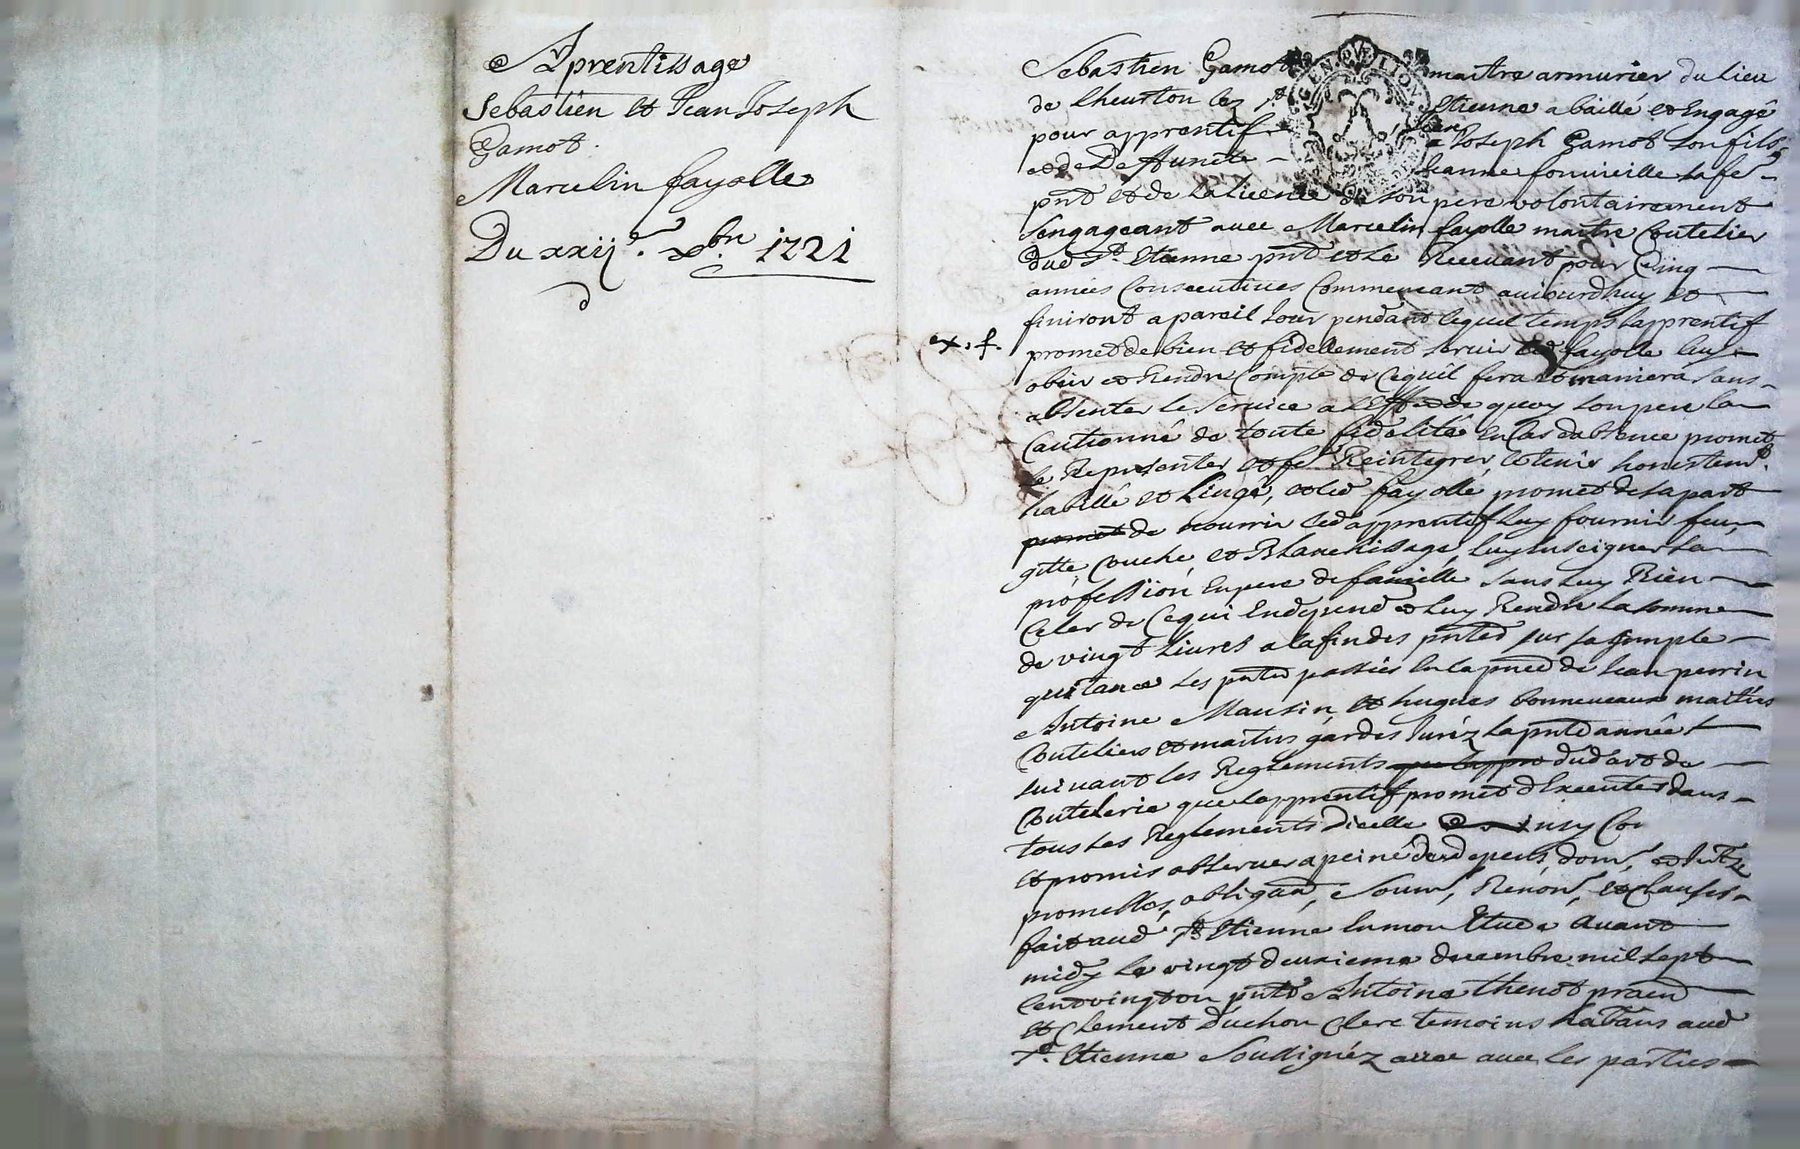 Aprentissage
Sebastien et Jean Joseph
Gamot.
Marcelin fayolle
Du xxij.e xbre. 1721
Sebastien Gamot maitre armurier du Lieu
de Lheurton lez St Etienne a baillé et Engagé
pour apprentif Jean Joseph Gamot son fils
et de Deffuncte Jeanne fournieille sa fe
pnt et de la licence de son pere volontairement
sengageant avec Marcelin fayolle maitre Coutelier
dud St. Etienne pnt et le Recevant pour Cinq
années Consecutives Commencant aujourdhuy et
finiront a pareil Jour pendant lequel temps lapprentif
ex. f.
promet de bien et fidellement servir led fayolle luy
obeir et Rendre Compte de Cequil fera et maniera sans
absenter le service a leffect de quoy son pere la
Cautionné de toute fidelité En Cas dabsence promet
le Representer et fe Reintegrer, le tenir honestemt.
habillé et Lingé, et led fayolle promet de sa part
promet de nourrir led apprentif luy fournir feu,
gitte, Couche, et Blanchissage, luy Enseigner sa
profession En pere de famille sans luy Rien
Celer de Cequi En depend et luy Rendre la somme
de vingt Livres a la fin des pntes sur sa simple
quitance Les pntes passées En la pnce de Jean perrin
Antoine Mausin, et hugues bonneveaux maitres
Couteliers et maitres gardes Juréz la pnte année
suivant les Reglements que lappre dud art de
Coutelerie que lapprentif promet dExecuter dans
tous les Reglements dicelle
et promis observer a peine de depens, dom, et Intz
promesses, obligaõn, Soum, Renon, et Clauses
fait aud St Etienne En mon Etude Avant
midy le vingt deuxieme decembre mil sept
Cent vingt un pnts Antoine thenot praen
et Clement duchon Clerc temoins habitans aud
St. Etienne Soussignéz avec les parties